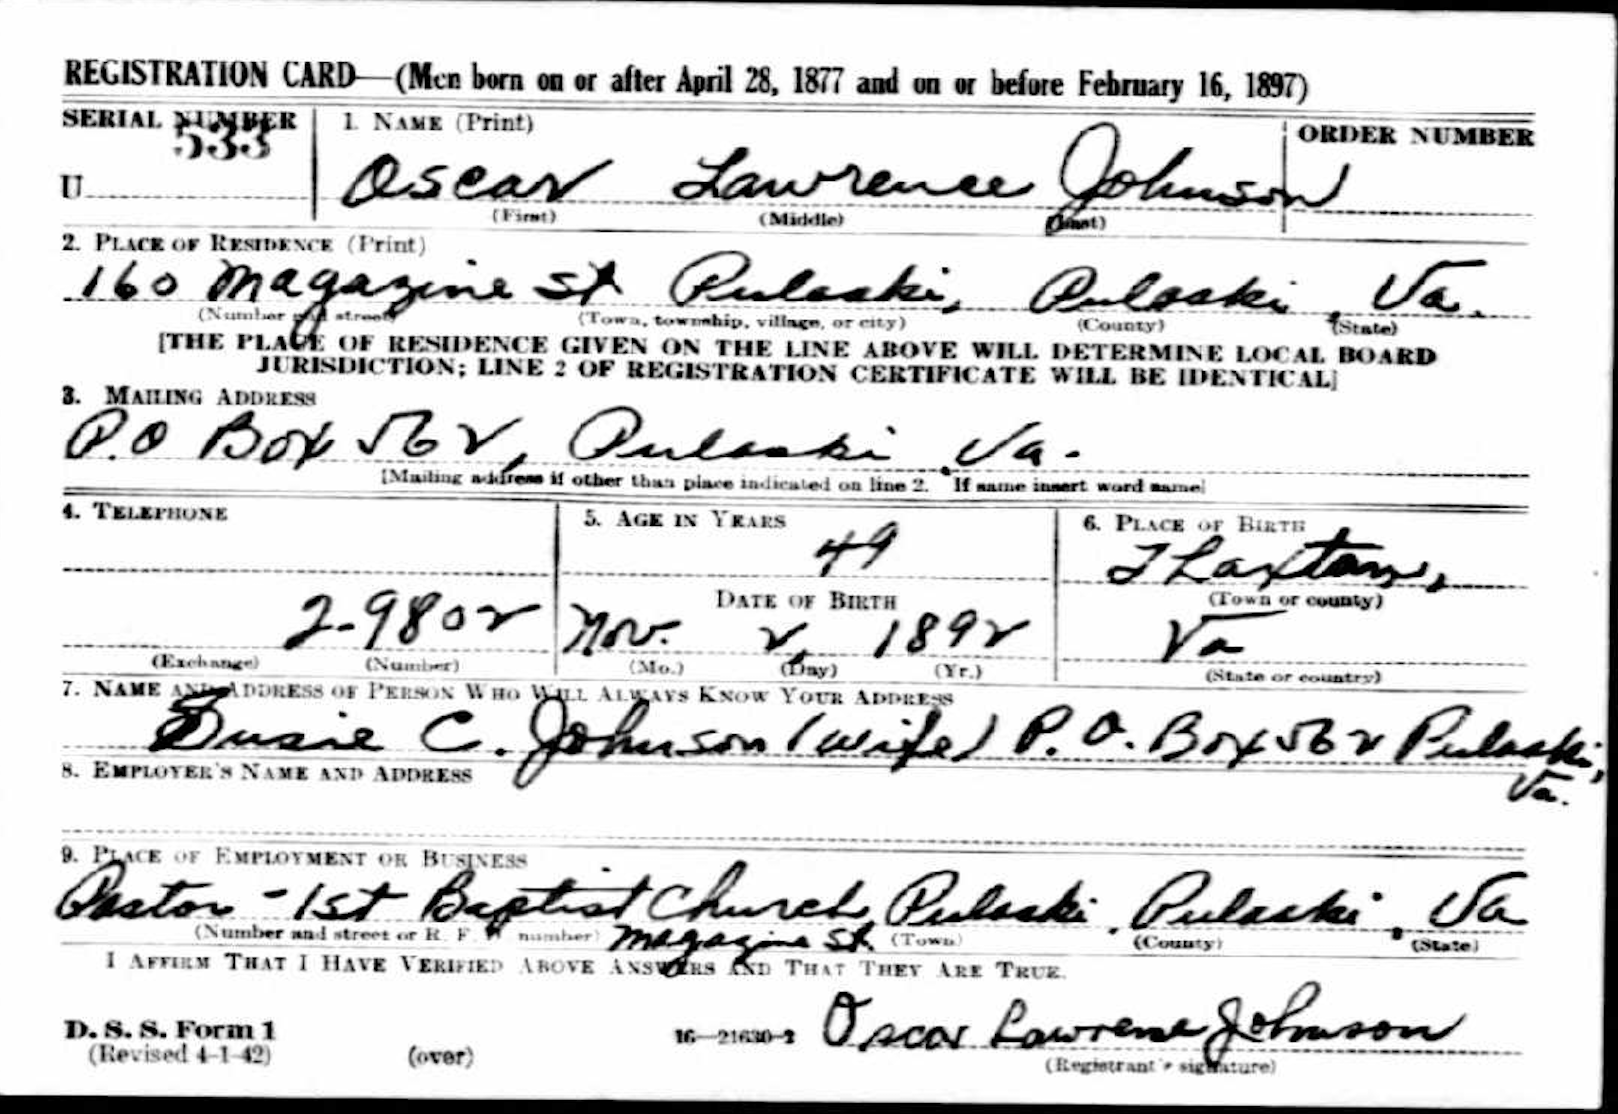 REGISTRATION CARD—(Men born on or after April 28, 1877 and on or before February 16, 1897)
SERIAL NUMBER 1. NAME (Print) ORDER NUMBER
533
U Oscar Lawrence Johnson
(First) (Middle) (Last)
2. PLACE OF RESIDENCE (Print)
160 Magazine St Pulaski, Pulaski, Va.
(Number and street) (Town, township, village, or city) (County) (State)
[THE PLACE OF RESIDENCE GIVEN ON THE LINE ABOVE WILL DETERMINE LOCAL BOARD
JURISDICTION; LINE 2 OF REGISTRATION CERTIFICATE WILL BE IDENTICAL]
3. MAILING ADDRESS
P.O Box 562, Pulaski, Va.
[Mailing address if other than place indicated on line 2. If same insert word same]
4. TELEPHONE 5. AGE IN YEARS 6. PLACE OF BIRTH
49 Thaxton,
DATE OF BIRTH (Town or county)
2-9802 Nov. 2, 1892 Va
(Exchange) (Number) (Mo.) (Day) (Yr.) (State or country)
7. NAME AND ADDRESS OF PERSON WHO WILL ALWAYS KNOW YOUR ADDRESS
Susie C. Johnson (wife) P.O. Box 562 Pulaski,
Va.
8. EMPLOYER'S NAME AND ADDRESS
9. PLACE OF EMPLOYMENT OR BUSINESS
Pastor - 1st Baptist Church, Pulaski, Pulaski, Va
(Number and street or R. F. D. number) Magazine St. (Town) (County) (State)
I AFFIRM THAT I HAVE VERIFIED ABOVE ANSWERS AND THAT THEY ARE TRUE.
D. S. S. Form 1
(Revised 4-1-42) (over) 16—21630-2 Oscar Lawrence Johnson
(Registrant's signature)